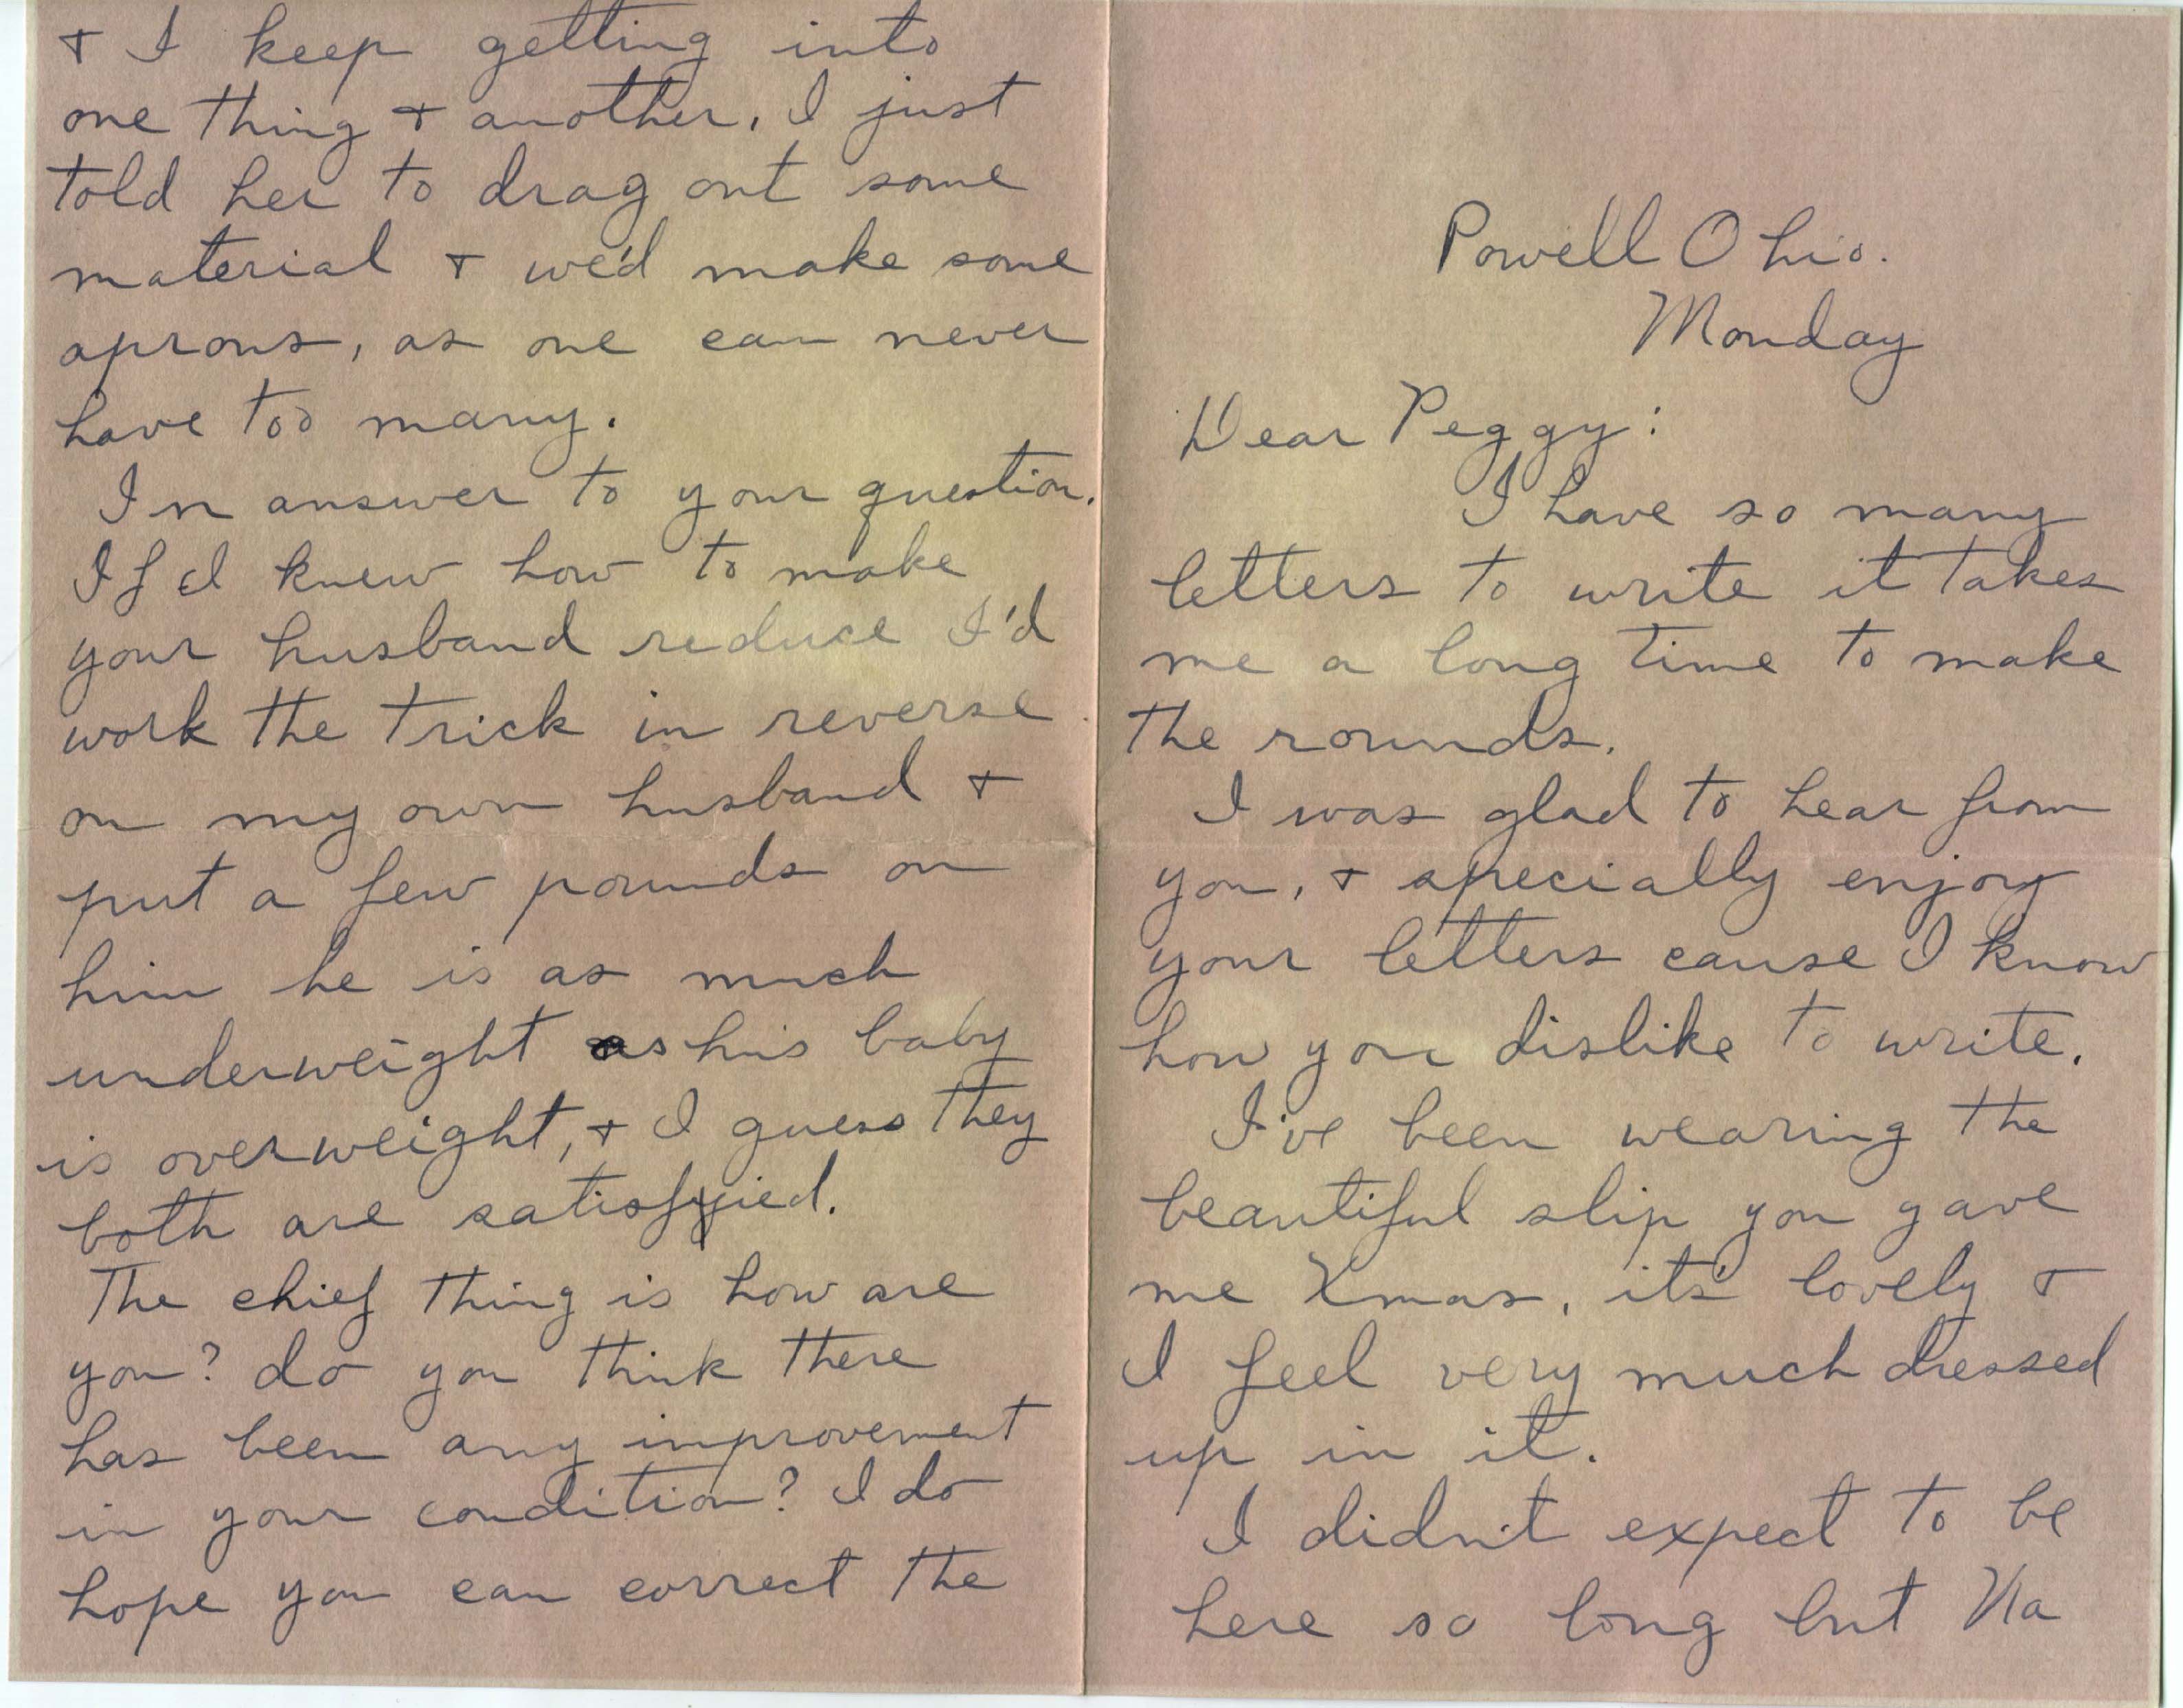 Powell Ohio.
Monday
Dear Peggy:
I have so many
letters to write it takes
me a long time to make
the rounds.
I was glad to hear from
you, & specially enjoy
your letters cause I know
how you dislike to write.
I've been wearing the
beautiful slip you gave
me Xmas, it's lovely &
I feel very much dressed
up in it.
I didn't expect to be
here so long but Ma
& I keep getting into
one thing & another, I just
told her to drag out some
material & we'd make some
aprons, as one can never
have too many.
In answer to your question.
If I knew how to make
your husband reduce I'd
work the trick in reverse
on my own husband &
put a few pounds on
him he is as much
underweight as his baby
is overweight, & I guess they
both are satisfied.
The chief thing is how are
you? do you think there
has been any improvement
in your condition? I do
hope you can correct the